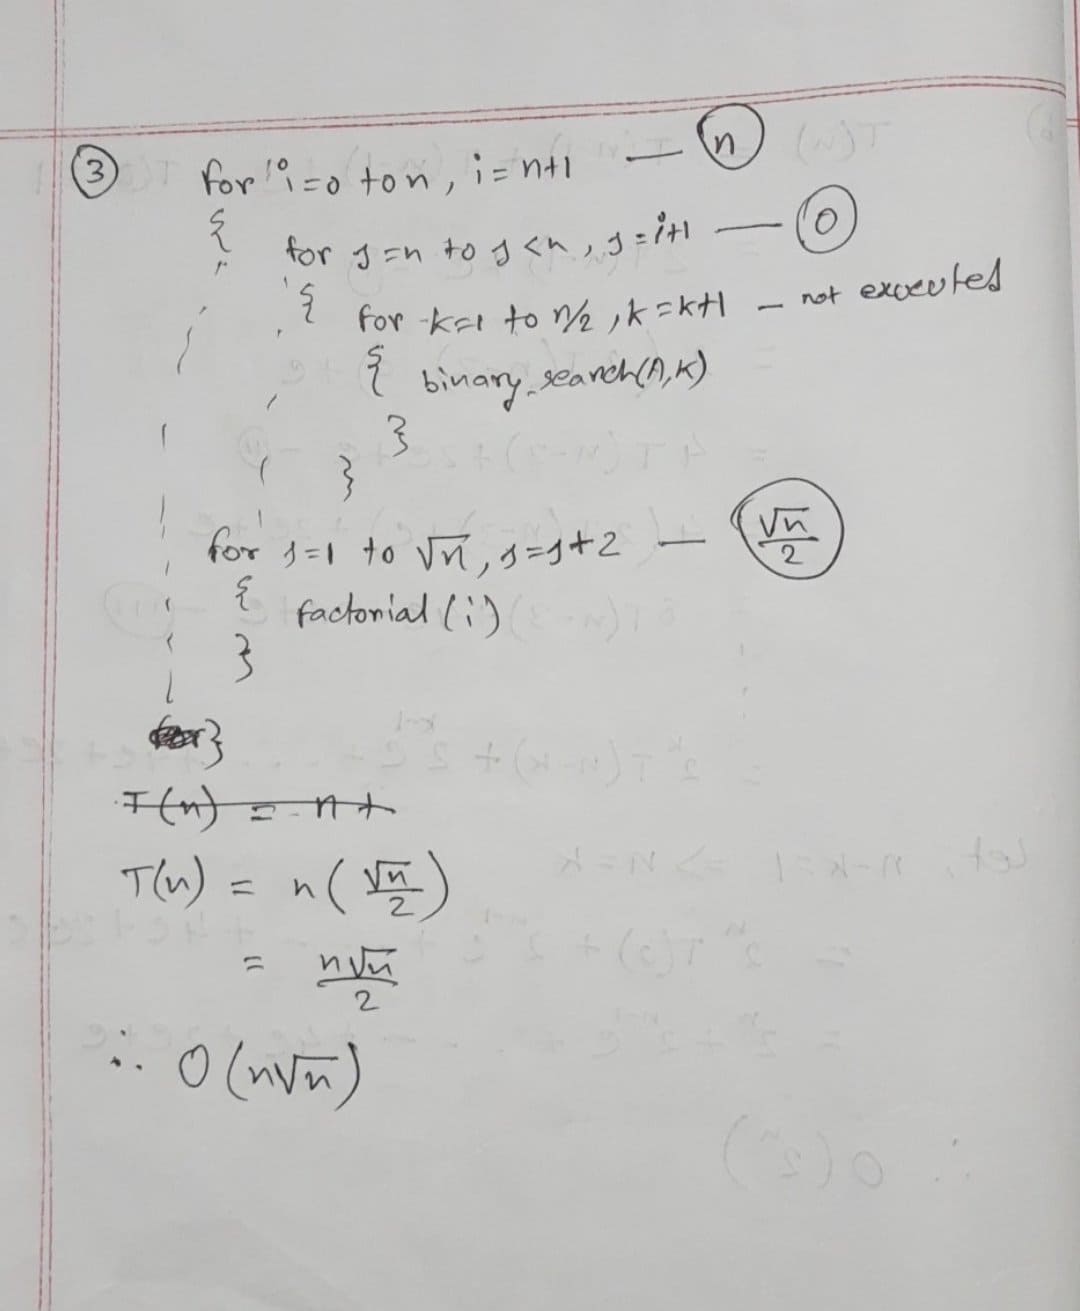 ③ for i=0 to n, i=n+1 — n
{
for j=n to j<n, j=i+1 — 0
{
for k=1 to n/2, k=k+1 - not executed
{ binary_search(A,K)
}
}
for j=1 to √n, j=j+2 — √n/2
{ factorial(i)
}
}
T(n) = n+
T(n) = n(√n/2)
= n√n/2
∴ O(n√n)